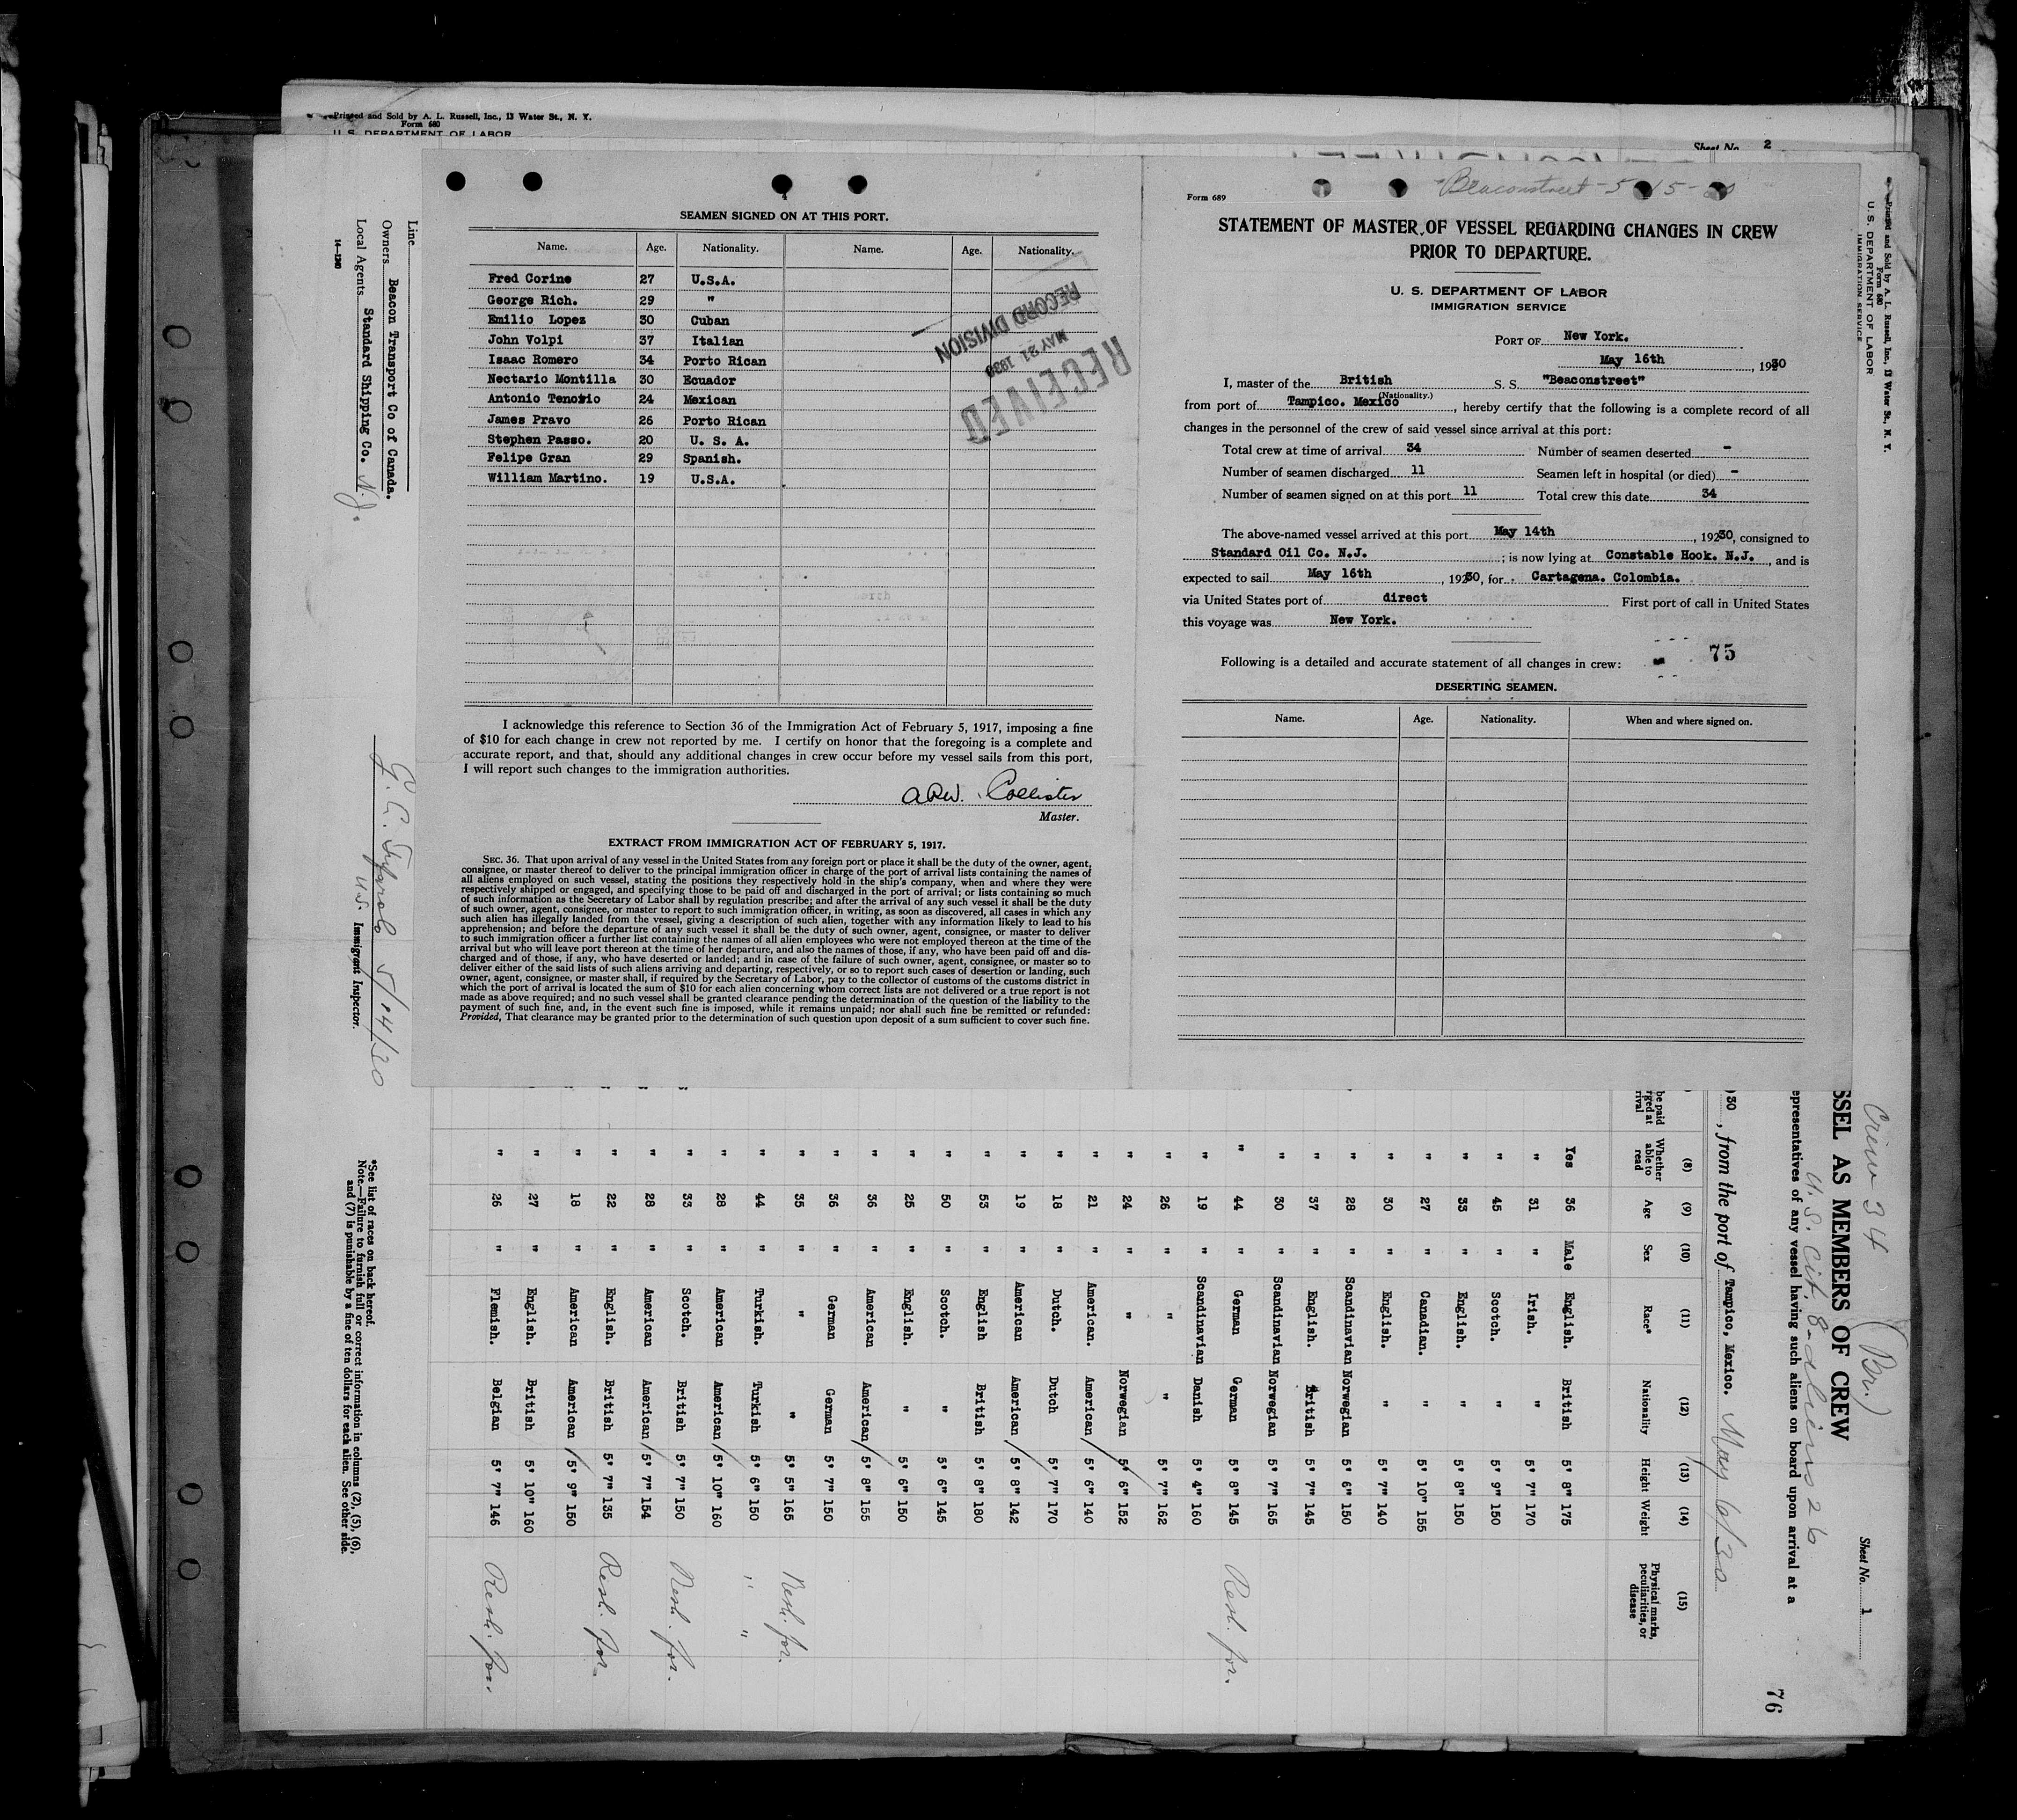 Printed and Sold by A. L. Russell, Inc., 13 Water St., N. Y.
Form 680
U. S. DEPARTMENT OF LABOR
Sheet No. 2
SEAMEN SIGNED ON AT THIS PORT.
Name. Age. Nationality. Name. Age. Nationality.
Fred Corine 27 U.S.A.
George Rich. 29 "
Emilio Lopez 30 Cuban
John Volpi 37 Italian
Isaac Romero 34 Porto Rican
Nectario Montilla 30 Ecuador
Antonio Tenorio 24 Mexican
James Pravo 26 Porto Rican
Stephen Passo. 20 U. S. A.
Felipe Gran 29 Spanish.
William Martino. 19 U.S.A.
RECEIVED
MAY 21 1930
RECORD DIVISION
I acknowledge this reference to Section 36 of the Immigration Act of February 5, 1917, imposing a fine
of $10 for each change in crew not reported by me. I certify on honor that the foregoing is a complete and
accurate report, and that, should any additional changes in crew occur before my vessel sails from this port,
I will report such changes to the immigration authorities.
A.R.W. Collister
Master.
EXTRACT FROM IMMIGRATION ACT OF FEBRUARY 5, 1917.
SEC. 36. That upon arrival of any vessel in the United States from any foreign port or place it shall be the duty of the owner, agent,
consignee, or master thereof to deliver to the principal immigration officer in charge of the port of arrival lists containing the names of
all aliens employed on such vessel, stating the positions they respectively hold in the ship's company, when and where they were
respectively shipped or engaged, and specifying those to be paid off and discharged in the port of arrival; or lists containing so much
of such information as the Secretary of Labor shall by regulation prescribe; and after the arrival of any such vessel it shall be the duty
of such owner, agent, consignee, or master to report to such immigration officer, in writing, as soon as discovered, all cases in which any
such alien has illegally landed from the vessel, giving a description of such alien, together with any information likely to lead to his
apprehension; and before the departure of any such vessel it shall be the duty of such owner, agent, consignee, or master to deliver
to such immigration officer a further list containing the names of all alien employees who were not employed thereon at the time of the
arrival but who will leave port thereon at the time of her departure, and also the names of those, if any, who have been paid off and dis-
charged and of those, if any, who have deserted or landed; and in case of the failure of such owner, agent, consignee, or master so to
deliver either of the said lists of such aliens arriving and departing, respectively, or so to report such cases of desertion or landing, such
owner, agent, consignee, or master shall, if required by the Secretary of Labor, pay to the collector of customs of the customs district in
which the port of arrival is located the sum of $10 for each alien concerning whom correct lists are not delivered or a true report is not
made as above required; and no such vessel shall be granted clearance pending the determination of the question of the liability to the
payment of such fine, and, in the event such fine is imposed, while it remains unpaid; nor shall such fine be remitted or refunded:
Provided, That clearance may be granted prior to the determination of such question upon deposit of a sum sufficient to cover such fine.
Beaconstreet - 5-15-30
Form 689
STATEMENT OF MASTER OF VESSEL REGARDING CHANGES IN CREW
PRIOR TO DEPARTURE.
U. S. DEPARTMENT OF LABOR
IMMIGRATION SERVICE
PORT OF New York.
May 16th, 1930
I, master of the British S. S. "Beaconstreet"
(Nationality.)
from port of Tampico. Mexico, hereby certify that the following is a complete record of all
changes in the personnel of the crew of said vessel since arrival at this port:
Total crew at time of arrival 34 Number of seamen deserted -
Number of seamen discharged 11 Seamen left in hospital (or died) -
Number of seamen signed on at this port 11 Total crew this date 34
The above-named vessel arrived at this port May 14th, 1930, consigned to
Standard Oil Co. N.J.; is now lying at Constable Hook. N.J., and is
expected to sail May 16th, 1930, for Cartagena. Colombia.
via United States port of direct First port of call in United States
this voyage was New York.
75
Following is a detailed and accurate statement of all changes in crew:
DESERTING SEAMEN.
Name. Age. Nationality. When and where signed on.
Printed and Sold by A. L. Russell, Inc., 13 Water St., N. Y.
Form 680
U. S. DEPARTMENT OF LABOR
IMMIGRATION SERVICE
Crew 34 (Br.)
U.S. Cit. 8 - aliens 26
Sheet No. 1
76
SSEL AS MEMBERS OF CREW
epresentatives of any vessel having such aliens on board upon arrival at a
30, from the port of Tampico, Mexico. May 6/30
be paid
rged at
rival
(8) Whether able to read (9) Age (10) Sex (11) Race* (12) Nationality (13) Height (14) Weight (15) Physical marks, peculiarities, or disease
Yes 36 Male English. British 5' 8" 175
" 31 " Irish. " 5' 7" 170
" 45 " Scotch. " 5' 9" 150
" 33 " English. " 5' 8" 150
" 27 " Canadian. " 5' 10" 155
" 30 " English. " 5' 7" 140
" 28 " Scandinavian Norwegian 5' 6" 150
" 37 " English. British 5' 7" 145
" 30 " Scandinavian Norwegian 5' 7" 165
" 44 " German German 5' 8" 145 Resh. for.
" 19 " Scandinavian Danish 5' 4" 160
" 26 " " " 5' 7" 162
" 24 " " Norwegian 5' 6" 152
" 21 " American. American 5' 6" 140
" 18 " Dutch. Dutch 5' 7" 170
" 19 " American American 5' 8" 142
" 53 " English British 5' 8" 180
" 50 " Scotch. " 5' 6" 145
" 25 " English. " 5' 6" 150
" 36 " American American 5' 8" 155
" 36 " German German 5' 7" 150
" 35 " " " 5' 5" 165 Resh. for.
" 44 " Turkish. Turkish 5' 6" 150 " "
" 28 " American American 5' 10" 160
" 33 " Scotch. British 5' 7" 150 Resh. for.
" 28 " American American 5' 7" 154
" 22 " English. British 5' 7" 135 Resh. for.
" 18 " American American 5' 9" 150
" 27 " English. British 5' 10" 160
" 26 " Flemish. Belgian 5' 7" 146 Resh. for.
Line
Owners Beacon Transport Co of Canada.
Local Agents Standard Shipping Co. N.J.
14-1240
5/14/30
U.S. Immigrant Inspector.
*See list of races on back hereof.
Note.—Failure to furnish full or correct information in columns (2), (5), (6),
and (7) is punishable by a fine of ten dollars for each alien. See other side.